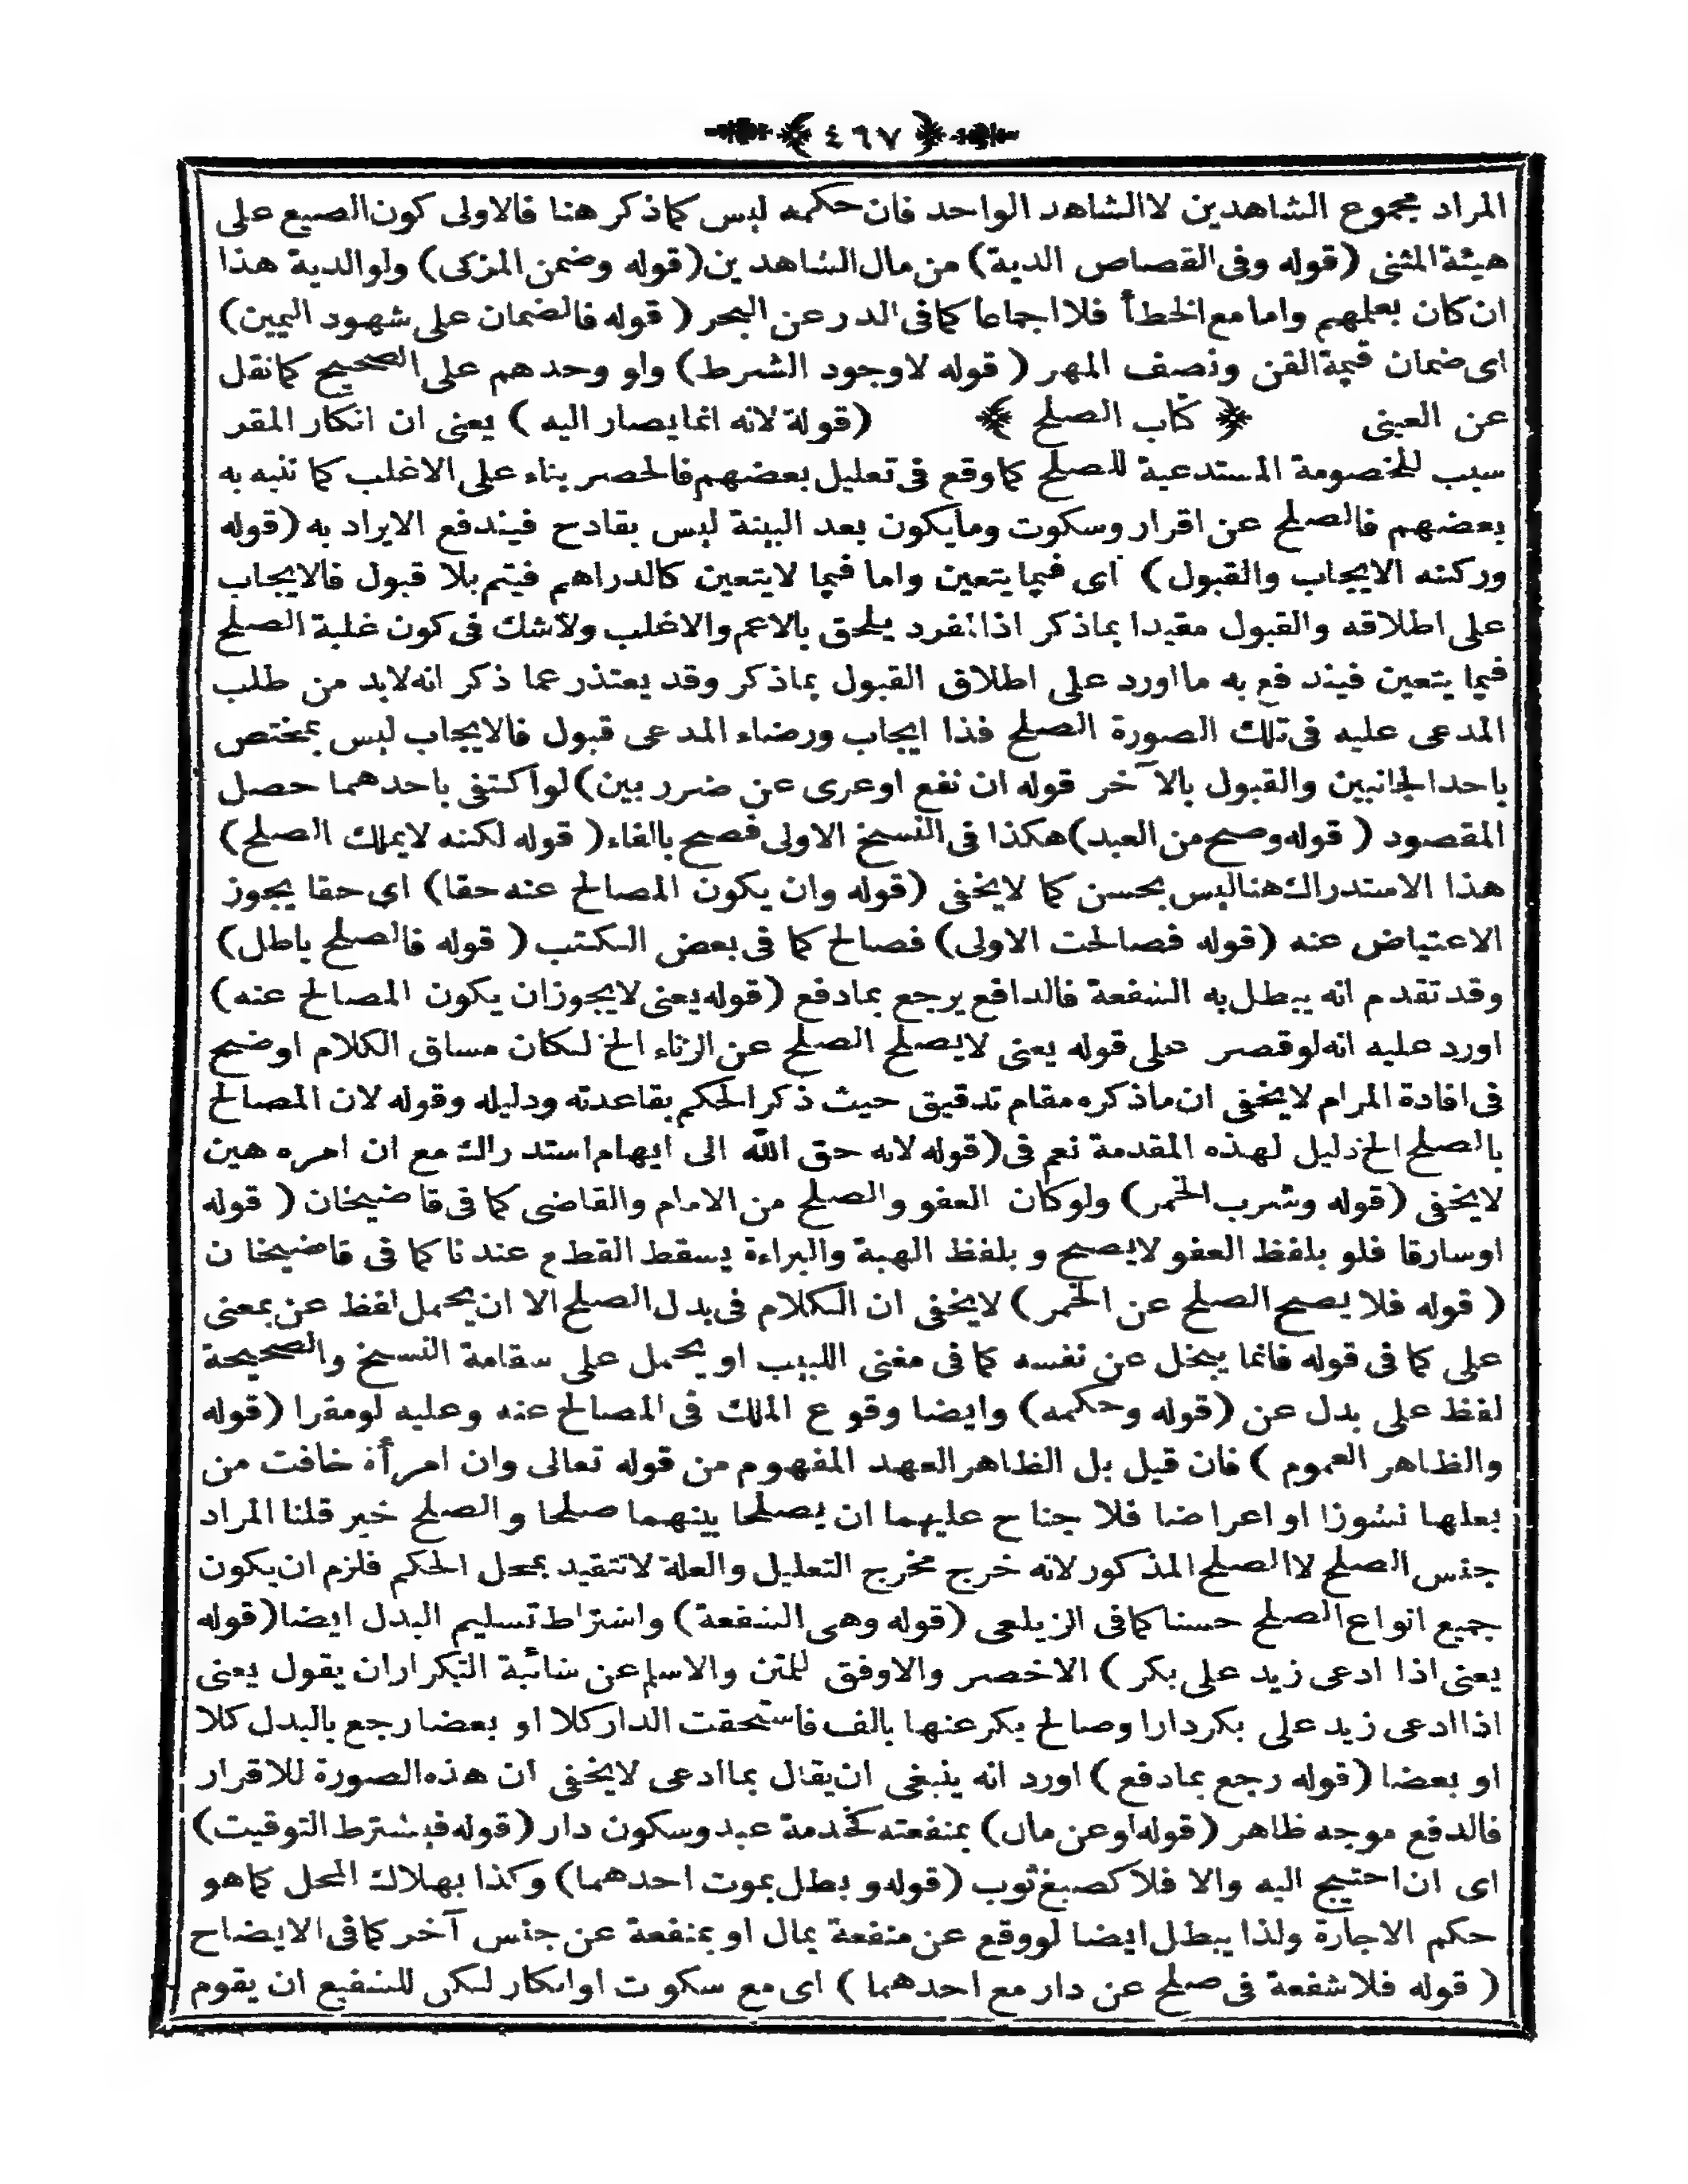 ﴿ ٤٦٧ ﴾
المراد مجموع الشاهدين لا الشاهد الواحد فان حكمه ليس كما ذكر هنا فالاولى كون الصيغ على
هيئة المثنى (قوله وفى القصاص الدية) من مال الشاهدين (قوله وضمن المزكى) ولو الدية هذا
ان كان بعلمهم واما مع الخطأ فلا اجماعا كما فى الدر عن البحر (قوله فالضمان على شهود اليمين)
اى ضمان قيمة القن ونصف المهر (قوله لا وجود الشرط) ولو وحدهم على الصحيح كما نقل
عن العينى ﴿ كتاب الصلح ﴾ (قوله لانه انما يصار اليه) يعنى ان انكار المقر
سبب للخصومة المستدعية للصلح كما وقع فى تعليل بعضهم فالحصر بناء على الاغلب كما تنبه به
بعضهم فالصلح عن اقرار وسكوت وما يكون بعد البينة ليس بقادح فيندفع الايراد به (قوله
وركنه الايجاب والقبول) اى فيما يتعين واما فيما لا يتعين كالدراهم فيتم بلا قبول فالايجاب
على اطلاقه والقبول مقيدا بماذكر اذا انفرد يلحق بالاعم والاغلب ولا شك فى كون غلبة الصلح
فيما يتعين فيندفع به ما اورد على اطلاق القبول بماذكر وقد يعتذر عما ذكر انه لابد من طلب
المدعى عليه فى تلك الصورة الصلح فذا ايجاب ورضاء المدعى قبول فالايجاب ليس بمختص
باحد الجانبين والقبول بالآخر قوله ان نفع او عرى عن ضرر بين) لو اكتفى باحدهما حصل
المقصود (قوله وصح من العبد) هكذا فى النسخ الاولى فصح بالفاء (قوله لكنه لا يملك الصلح)
هذا الاستدراك هنا ليس بحسن كما لا يخفى (قوله وان يكون المصالح عنه حقا) اى حقا يجوز
الاعتياض عنه (قوله فصالحت الاولى) فصالح كما فى بعض الكتب (قوله فالصلح باطل)
وقد تقدم انه يبطل به الشفعة فالدافع يرجع بما دفع (قوله يعنى لا يجوز ان يكون المصالح عنه)
اورد عليه انه لو قصر على قوله يعنى لا يصلح الصلح عن الزناء الخ لكان مساق الكلام اوضح
فى افادة المرام لا يخفى ان ما ذكره مقام تدقيق حيث ذكر الحكم بقاعدته ودليله وقوله لان المصالح
بالصلح الخ دليل لهذه المقدمة نعم فى (قوله لانه حق الله الى ايهام استدراك مع ان امره هين
لا يخفى (قوله وشرب الخمر) ولو كان العفو والصلح من الامام والقاضى كما فى قاضيخان (قوله
او سارقا فلو بلفظ العفو لا يصح و بلفظ الهبة والبراءة يسقط القطع عندنا كما فى قاضيخان
(قوله فلا يصح الصلح عن الخمر) لا يخفى ان الكلام فى بدل الصلح الا ان يحمل لفظ عن بمعنى
على كما فى قوله فانما يبخل عن نفسه كما فى مغنى اللبيب او يحمل على سقامة النسخ والصحيحة
لفظ على بدل عن (قوله وحكمه) وايضا وقوع الملك فى المصالح عنه وعليه لو مقرا (قوله
والظاهر العموم) فان قيل بل الظاهر العهد المفهوم من قوله تعالى وان امرأة خافت من
بعلها نشوزا او اعراضا فلا جناح عليهما ان يصلحا بينهما صلحا والصلح خير قلنا المراد
جنس الصلح لا الصلح المذكور لانه خرج مخرج التعليل والعلة لا تتقيد بمحل الحكم فلزم ان يكون
جميع انواع الصلح حسنا كما فى الزيلعى (قوله وهى الشفعة) واشتراط تسليم البدل ايضا (قوله
يعنى اذا ادعى زيد على بكر) الاخصر والاوفق للمتن والاسلم عن شائبة التكرار ان يقول يعنى
اذا ادعى زيد على بكر دارا وصالح بكر عنها بالف فاستحقت الدار كلا او بعضا رجع بالبدل كلا
او بعضا (قوله رجع بما دفع) اورد انه ينبغى ان يقال بما ادعى لا يخفى ان هذه الصورة للاقرار
فالدفع موجه ظاهر (قوله او عن مال) بمنفعته كخدمة عبد وسكون دار (قوله فيشترط التوقيت)
اى ان احتيج اليه والا فلا كصبغ ثوب (قوله و بطل بموت احدهما) وكذا بهلاك المحل كما هو
حكم الاجارة ولذا يبطل ايضا لو وقع عن منفعة بمال او بمنفعة عن جنس آخر كما فى الايضاح
(قوله فلا شفعة فى صلح عن دار مع احدهما) اى مع سكوت او انكار لكن للشفيع ان يقوم